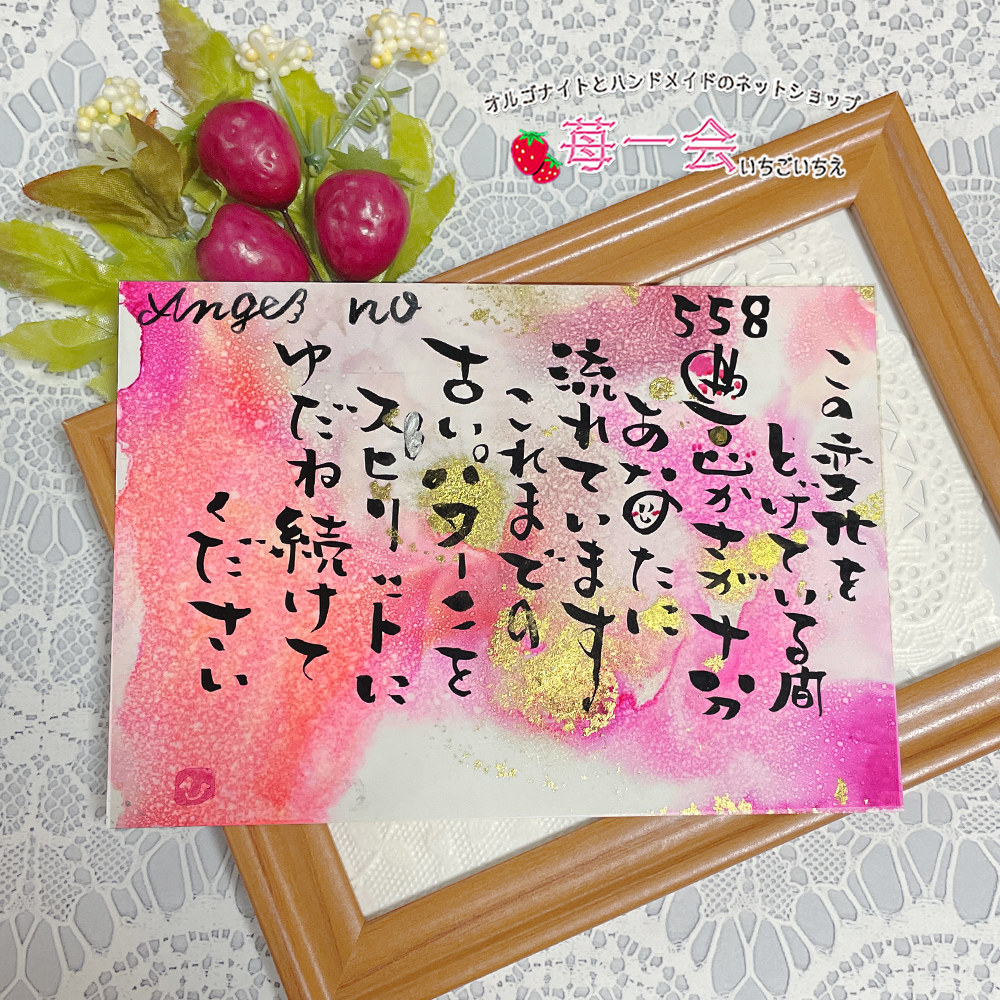 オルゴナイトとハンドメイドのネットショップ
苺一会
いちごいちえ
Angel no 558
この変化を
とげている間
豊かさが十分
あなたに
流れています
これまでの
古いパターンを
スピリットに
ゆだね続けて
ください
ひ